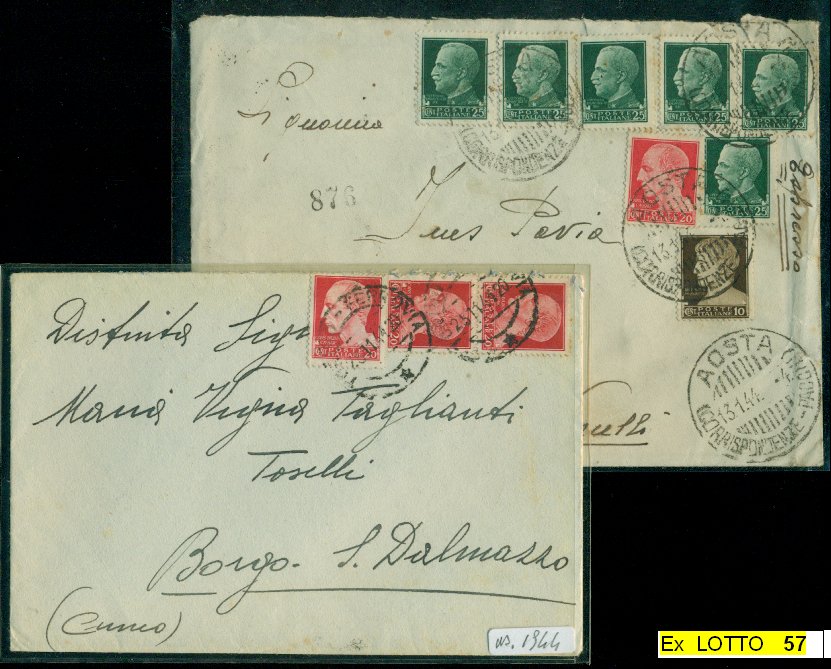 POSTE ITALIANE CENT 25
POSTE ITALIANE CENT 25
POSTE ITALIANE CENT 25
POSTE ITALIANE CENT 25
POSTE ITALIANE CENT 25
Signorina
876
Ines Pavia
Espresso
POSTE ITALIANE CENT 20
POSTE ITALIANE CENT 25
POSTE ITALIANE 10
AOSTA
13.1.44
(CORRISPONDENZE-PACCHI)
POSTE ITALIANE CENT 20
Distinta Sig
Maria Vigna Taglianti
Toselli
Borgo S. Dalmazzo
(Cuneo)
us. 1944
Ex LOTTO 57